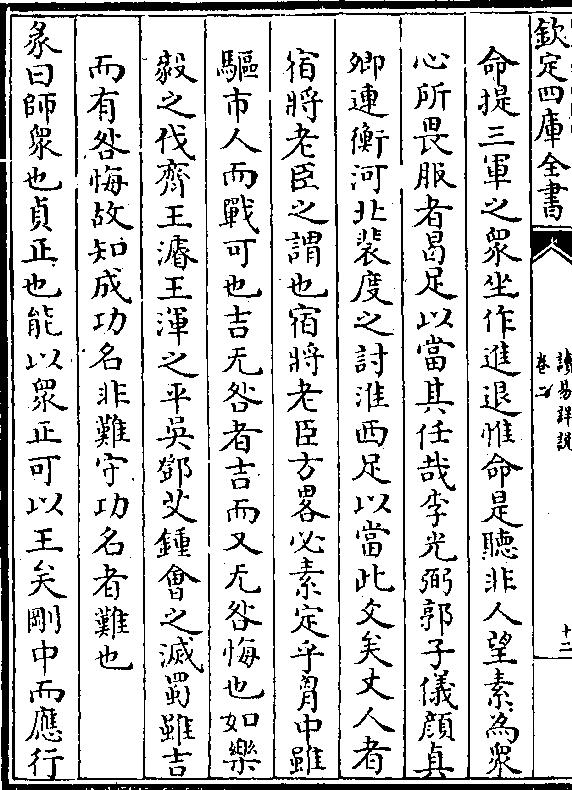 欽定四庫全書
讀易詳說
卷二
十二
命提三軍之衆坐作進退惟命是聽非人望素為衆
心所畏服者曷足以當其任哉李光弼郭子儀顔真
卿連衡河北裴度之討淮西足以當此文矣丈人者
宿將老臣之謂也宿將老臣方畧必素定乎胷中雖
驅市人而戰可也吉无咎者吉而又无咎悔也如樂
毅之伐齊王濬王渾之平吳鄧艾鍾會之滅蜀雖吉
而有咎悔故知成功名非難守功名者難也
彖曰師衆也貞正也能以衆正可以王矣剛中而應行